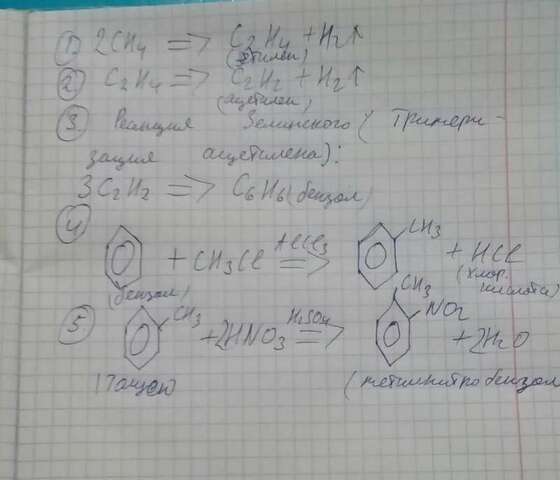 1) 2CH4 => C2H4 + H2↑
(этилен)
2) C2H4 => C2H2 + H2↑
(ацетилен)
3. Реакция Зелинского (тримери-
зация ацетилена):
3C2H2 => C6H6 (бензол)
4
+ CH3Cl AlCl3 => CH3 + HCl
(бензол) (хлор. кислота)
5 CH3 + 2HNO3 H2SO4 => CH3 NO2 + 2H2O
(метилнитробензол